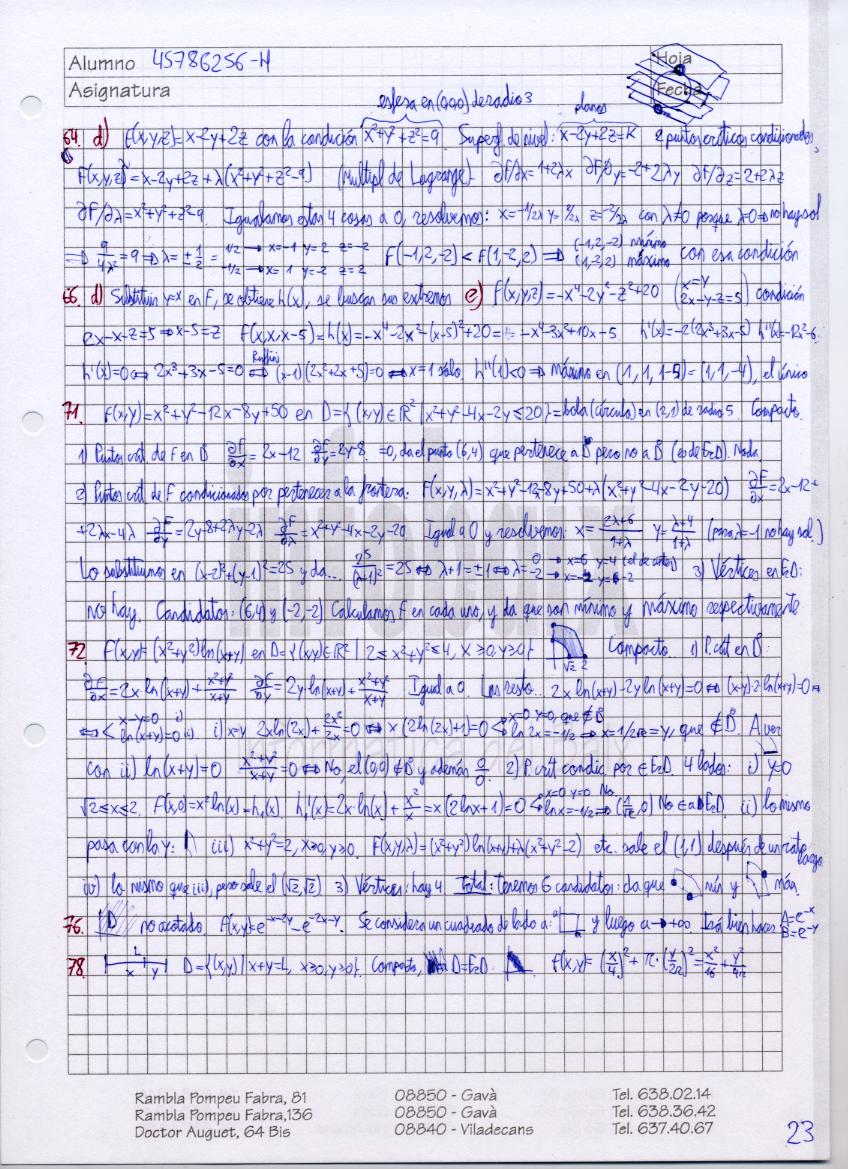 Alumno 45786256-H
Hoja
Asignatura
Fecha
esfera en (0,0,0) de radio 3
planos
64. d) f(x,y,z)=x-2y+2z con la condición x²+y²+z²=9. Superf. de nivel: x-2y+2z=K 2 puntos críticos condicionados,
F(x,y,z,λ)=x-2y+2z+λ(x²+y²+z²-9) (Multipl de Lagrange) ∂F/∂x=1+2λx ∂F/∂y=-2+2λy ∂F/∂z=2+2λz
∂F/∂λ=x²+y²+z²-9. Igualamos estas 4 cosas a 0, resolvemos: x=-1/2λ y=2/2λ z=-2/2λ con λ≠0 porque λ=0⇒no hay sol
⇒ 9/4λ²=9⇒λ=±1/2= 1/2→x=-1 y=2 z=-2 -1/2→x=1 y=-2 z=2 F(-1,2,-2)<F(1,-2,2)⇒ (-1,2,-2) mínimo (1,-2,2) máximo con esa condición
66. d) Substituir y=x en F, se obtiene h(x), se buscan sus extremos e) f(x,y,z)=-x⁴-2y²-z²+20 (x=y 2x-y-z=5) condición
2x-x-z=5⇒x-5=z f(x,x,x-5)=h(x)=-x⁴-2x²-(x-5)²+20=...=-x⁴-3x²+10x-5 h'(x)=-2(2x³+3x-5) h''(x)=-12x²-6
h'(x)=0⇔2x³+3x-5=0 ⇔ Ruffini (x-1)(2x²+2x+5)=0⇔x=1 sólo. h''(1)<0⇒máximo en (1,1,1-5)=(1,1,-4), el único
71. f(x,y)=x²+y²-12x-8y+50 en D={(x,y)∈ℝ²|x²+y²-4x-2y≤20}=bola (círculo) en (2,1) de radio 5. Compacto.
1) Puntos crít. de F en D̊ ∂F/∂x=2x-12 ∂F/∂y=2y-8. =0, da el punto (6,4) que pertenece a D pero no a D̊ (es de FrD). Nada
2) Puntos crít. de F condicionados por pertenecer a la frontera: F(x,y,λ)=x²+y²-12x-8y+50+λ(x²+y²-4x-2y-20) ∂F/∂x=2x-12+
+2λx-4λ ∂F/∂y=2y-8+2λy-2λ ∂F/∂λ=x²+y²-4x-2y-20 Igual a 0 y resolvemos: x=2λ+6/1+λ y=λ+4/1+λ (para λ=-1 no hay sol.)
Lo substituimos en (x-2)²+(y-1)²=25 y da... 25/(λ+1)²=25⇔λ+1=±1⇔λ= 0→x=6 y=4 (el de antes) -2→x=-2 y=-2 3) Vértices en FrD:
no hay. Candidatos: (6,4) y (-2,-2) Calculamos f en cada uno, y da que son mínimo y máximo respectivamente
72. f(x,y)=(x²+y²)ln(x+y) en D={(x,y)∈ℝ²|2≤x²+y²≤4, x≥0,y≥0} √2 2 Compacto 1) P.crít en D̊:
∂F/∂x=2x·ln(x+y)+x²+y²/x+y ∂F/∂y=2y·ln(x+y)+x²+y²/x+y Igual a 0. Las resto... 2x ln(x+y)-2y ln(x+y)=0⇔(x-y)·2·ln(x+y)=0⇔
⇔ x-y=0 i) ln(x+y)=0 ii) i) x=y 2xln(2x)+2x²/2x=0⇔x(2ln(2x)+1)=0 x=0 y=0, que ∉D̊ ln2x=-1/2→x=1/2√e=y, que ∉D̊. A ver
con ii) ln(x+y)=0 x²+y²/x+y=0⇔No, el (0,0)∉D̊ y además 0/0. 2) P.crít condic. por ∈FrD. 4 lados: i) y=0
√2≤x≤2. f(x,0)=x²ln(x)=h₁(x) h₁'(x)=2x·ln(x)+x²/x=x(2lnx+1)=0 x=0 y=0 No lnx=-1/2⇒(1/√e,0) No ∈ a FrD. ii) lo mismo
pasa con la y: iii) x²+y²=2, x≥0,y≥0. F(x,y,λ)=(x²+y²)ln(x+y)+λ(x²+y²-2) etc. sale el (1,1) después de un rato largo
iv) lo mismo que iii), pero sale el (√2,√2) 3) Vértices: hay 4. Total: tenemos 6 candidatos: da que mín y máx.
76. D no acotado f(x,y)=e^(-x-2y)-e^(-2x-y). Se considera un cuadrado de lado a: a y luego a→+∞ Irá bien hacer A=e^-x B=e^-y
78. L x y D={(x,y)|x+y=L, x≥0,y≥0}. Compacto, D=FrD. f(x,y)=(x/4)²+π·(y/2π)²=x²/16+y²/4π
Rambla Pompeu Fabra, 81 08850 - Gavà Tel. 638.02.14
Rambla Pompeu Fabra,136 08850 - Gavà Tel. 638.36.42
Doctor Auguet, 64 Bis 08840 - Viladecans Tel. 637.40.67
23